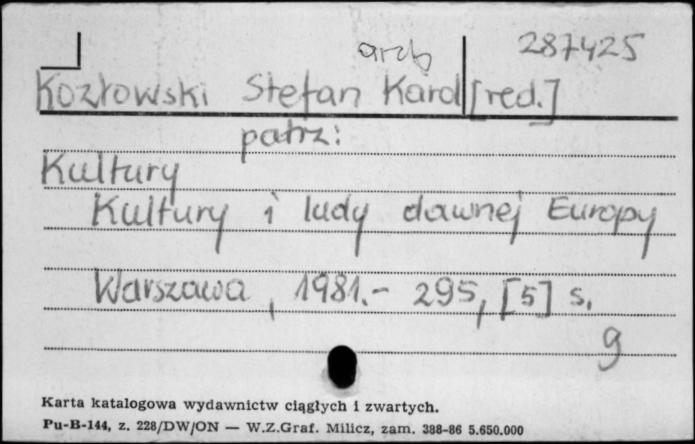 arch 287425
Kozłowski Stefan Karol [red.]
patrz:
Kultury
Kultury i ludy dawnej Europy
Warszawa, 1981.- 295, [5] s.
g
Karta katalogowa wydawnictw ciągłych i zwartych.
Pu-B-144, z. 228/DW/ON — W.Z.Graf. Milicz, zam. 388-86 5.650.000